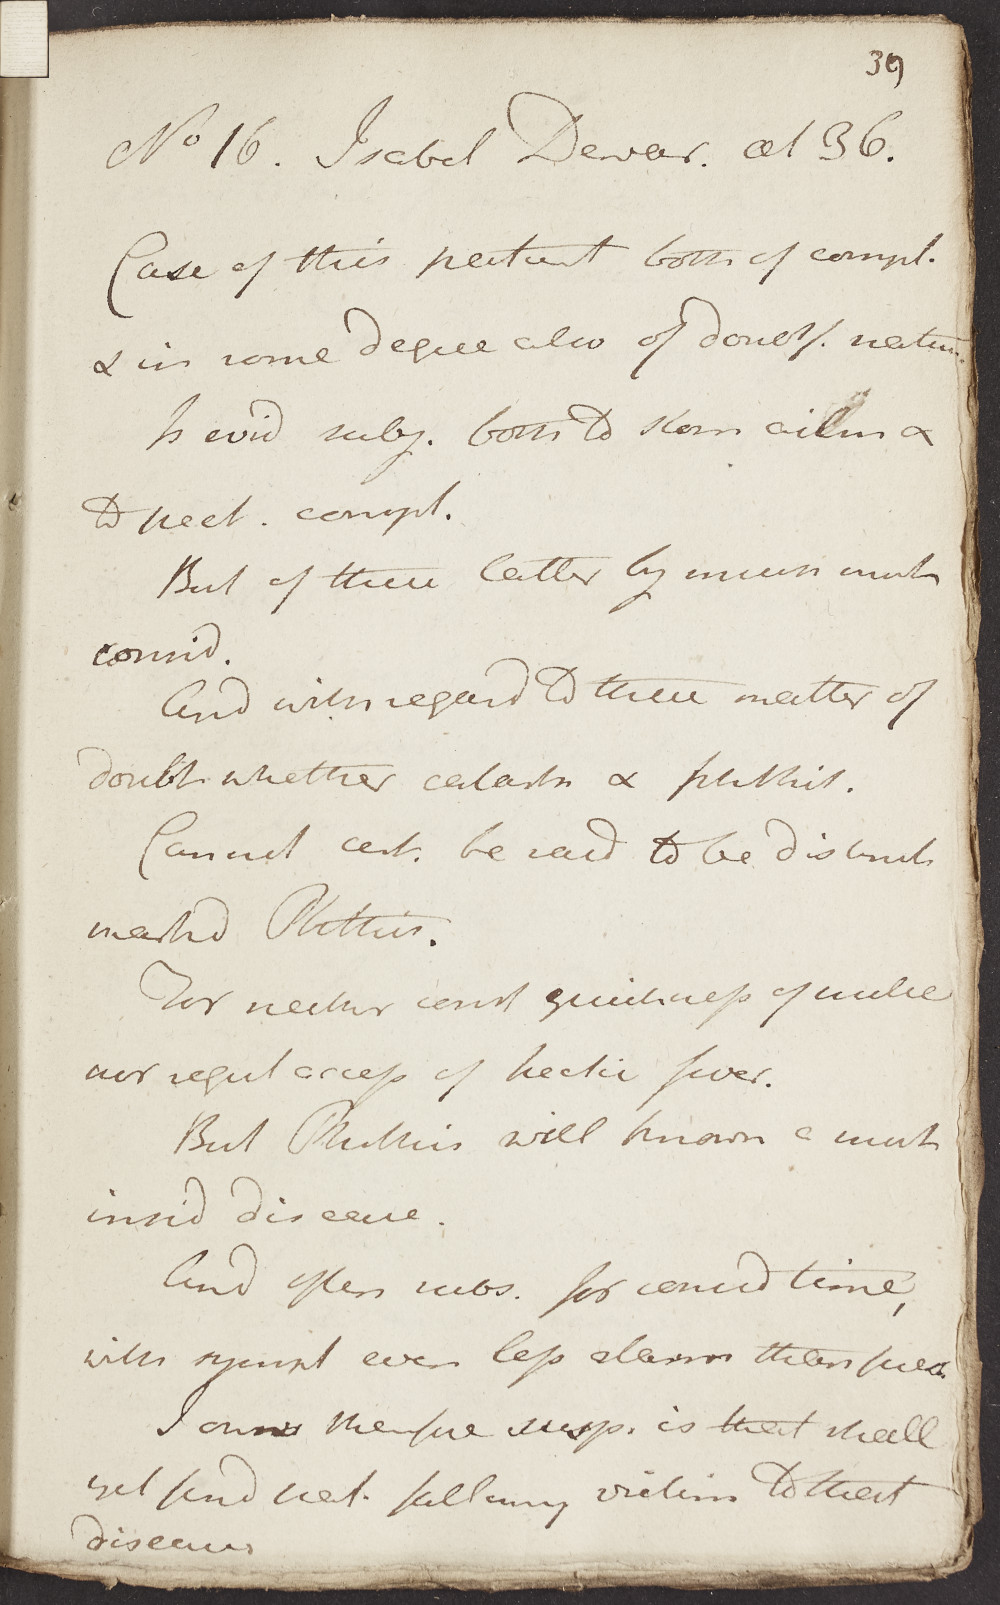 39
No 16. Isabel Dewar. aet 36.
Case of this patient both of compl.
& in some degree also of doubtf. nature.
Is evid subj. both to stom ailm &
to pect. compl.
But of these latter by much most
consid.
And with regard to these matter of
doubt whether catarh & phthis.
Cannot cert. be said to be distinct
markd Phthisis.
For neither const quickness of pulse
nor regul access of hectic fever.
But Phthisis well known a most
insid disease.
And often subs. for consid time,
with sympt even less alarm than pres.
I own therefore susp. is that shall
yet find pat. fall any victim to that
disease